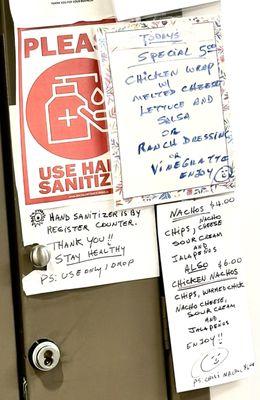 THANK YOU FOR
PLEA
USE HA
SANITIZ
HAND SANITIZER IS BY
REGISTER COUNTER.
THANK YOU!!
STAY HEALTHY
PS: USE ONLY 1 DROP
TODAYS
SPECIAL 5.00
CHICKEN WRAP
W/
MELTED CHEESE
LETTUCE AND
SALSA
OR
RANCH DRESSING
OR
VINEGRATTE
ENJOY
NACHOS $4.00
CHIPS, NACHO CHEESE
SOUR CREAM
AND
JALAPEÑOS
ALSO $6.00
CHICKEN NACHOS
CHIPS, WARMED CHICK
NACHO CHEESE,
SOUR CREAM
AND
JALAPEÑOS
ENJOY!!
PS: CHILI NACHO